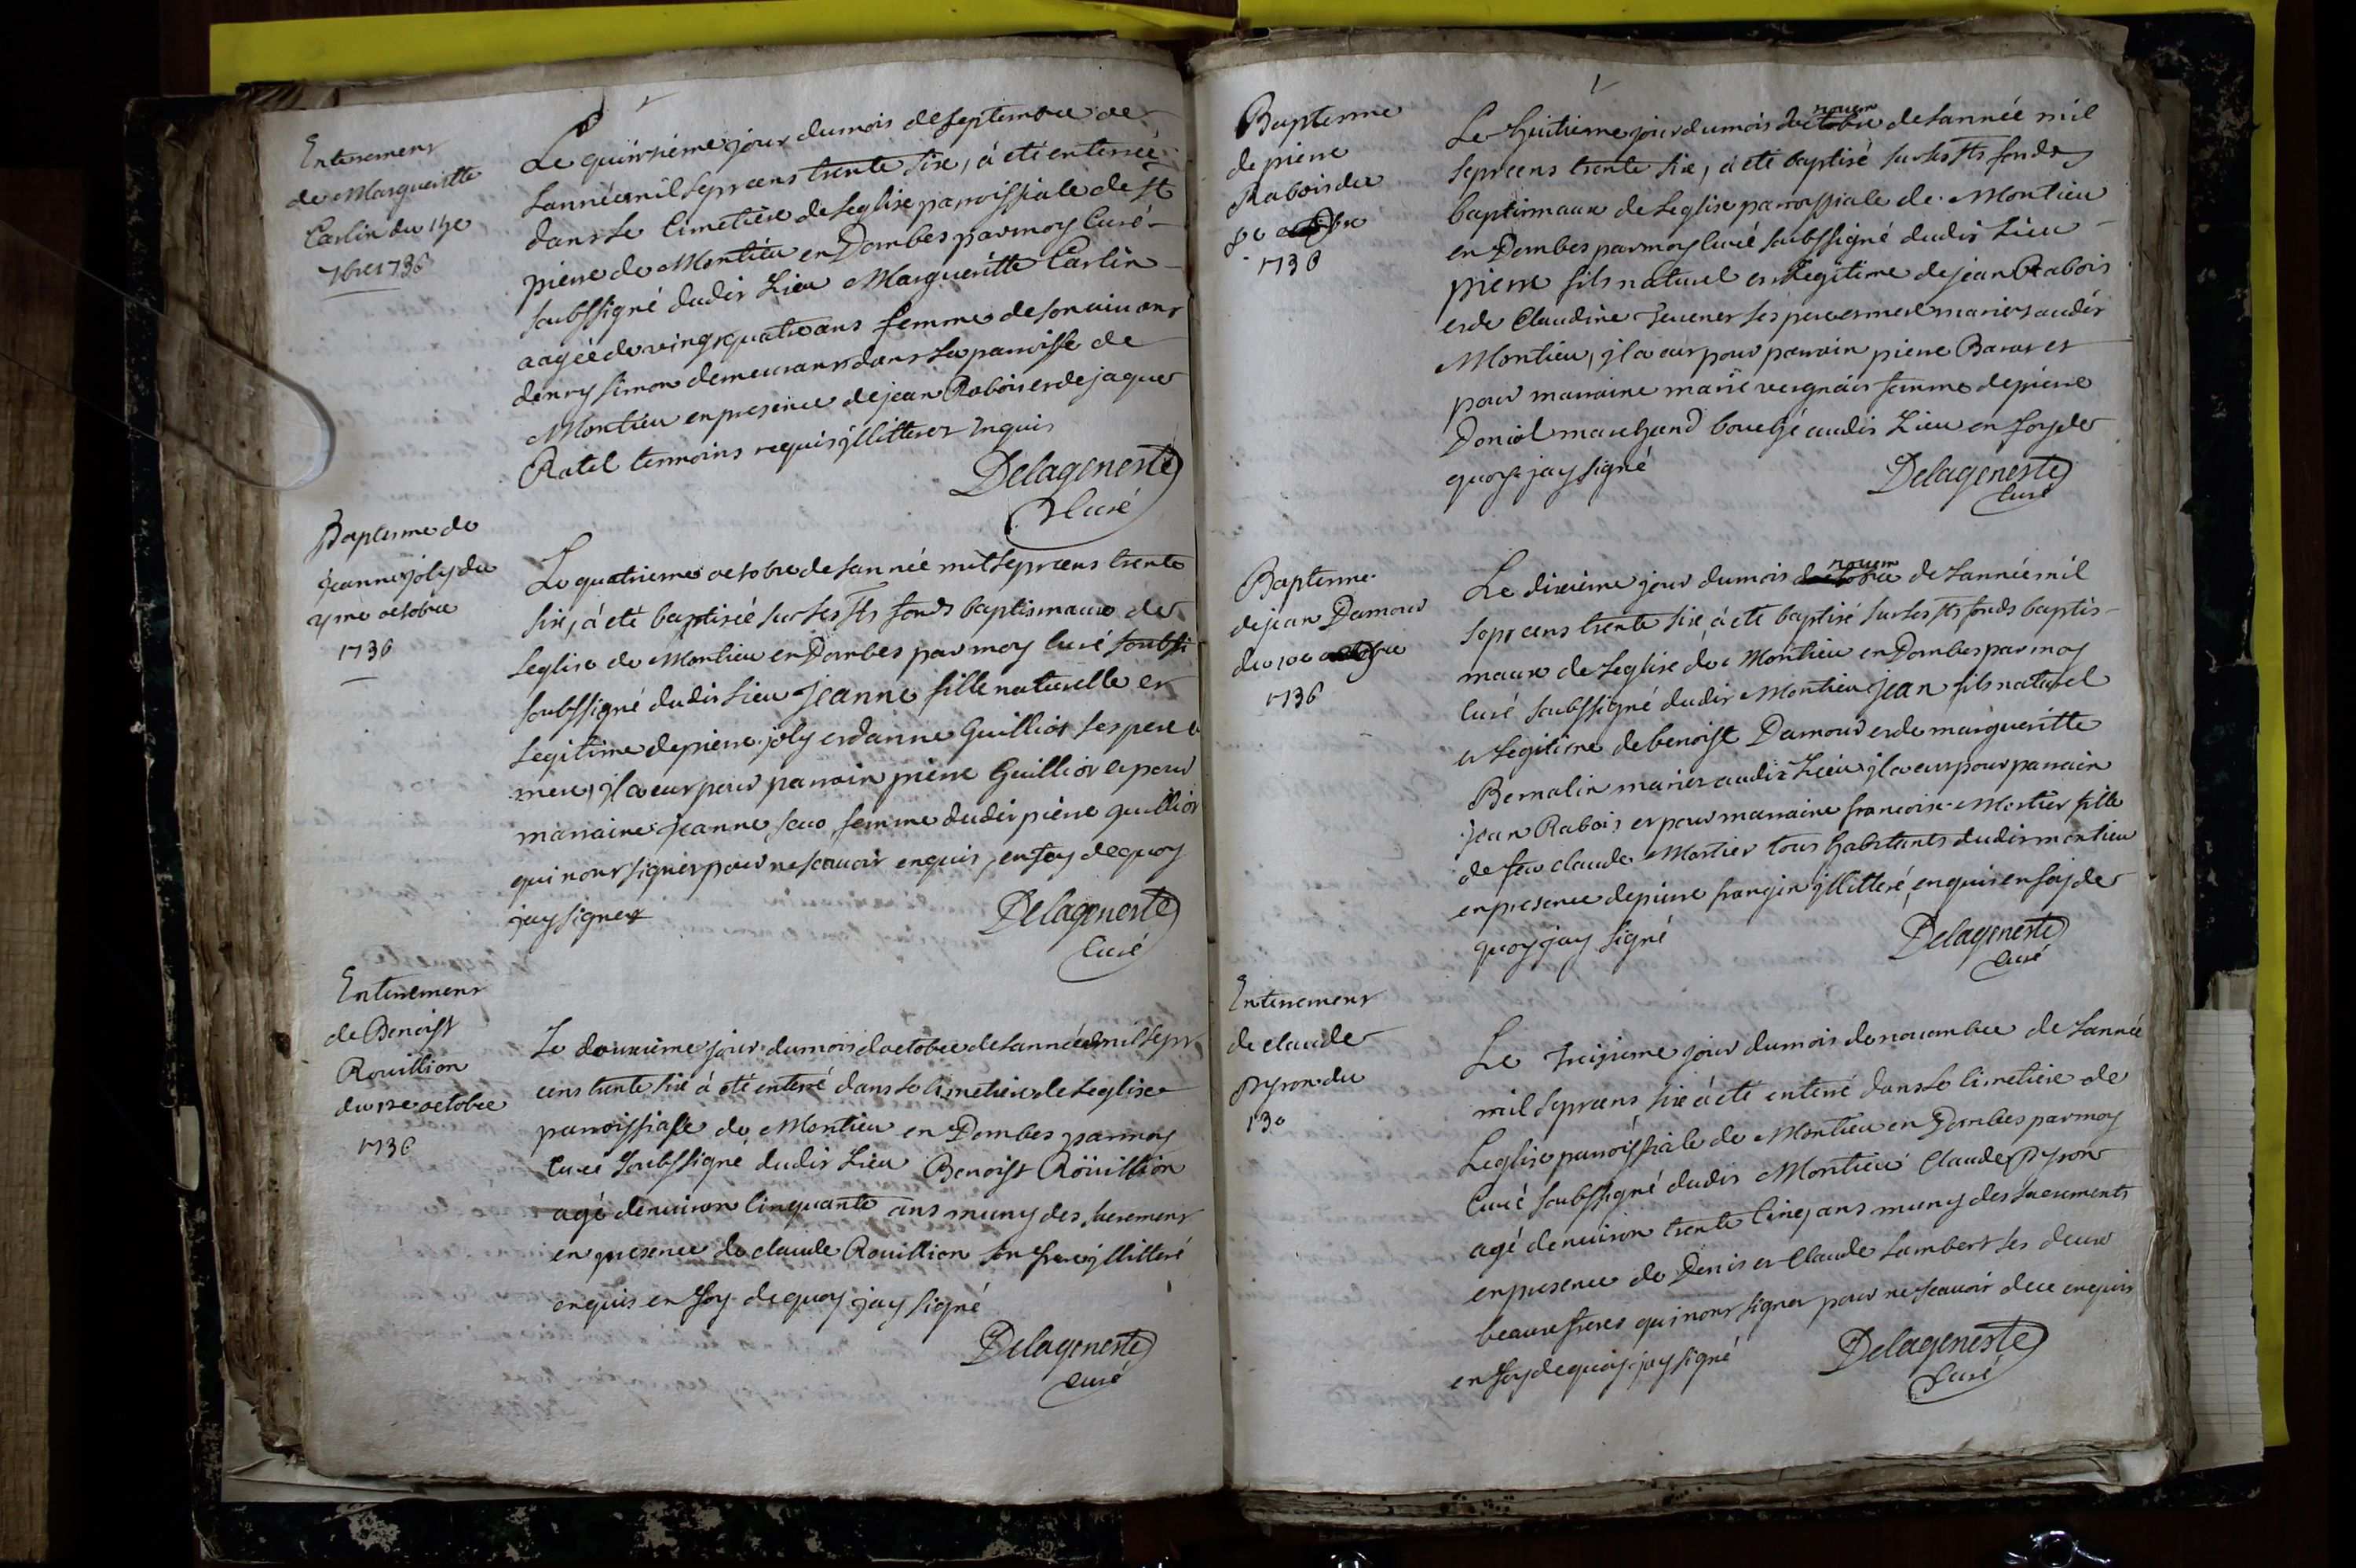 Enterrement
de Margueritte
Carlin du 15e
7bre 1736
Le quinsiéme jour du mois de septembre de
lannée mil sept cens trente six, á eté enterreé
dans le Cimetiére de leglise parroissiale de St
pierre de Montieu en Dombes par moy Curé
soubssigné dudit Lieu Margueritte Carlin
aageé de vingt quatre ans femme de son vivant
denry simon demeurant dans la parroisse de
Montieu en presence de jean Rabois et de jaques
Ratel temoins requis jllitteres Inquis
Delageneste
Curé
Baptesme de
jeanne joly du
4me octobre
1736
Le quatrieme octobre de lannée mil sept cens trente
six, á eté baptiseé sur les sts fonds baptismaux de
Leglise de Montieu en Dombes par moy curé soubssi
soubssigné dudit Lieu jeanne fille naturelle et
Legitime de pierre joly et danne Guilliot ses pere e
mere, jl a eut pour parrain pierre Guilliot et pour
marraine jeanne femme dudit pierre guilliot
qui n'ont signes pour ne scauoir enquis, en foy dequoy
jay signer
Delageneste
Curé
Enterrement
de Benoist
Rouillion
du 12e octobre
1736
Le douxiéme jour du mois doctobre de lannéé mil sept
cens trente six á eté enterré dans le cimetiere de leglise
parroissiale de Montieu en Dombes par moy
Curé soubssigné dudit Lieu Benoist Röuillion
agé denuiron Cinquante ans muny des sacrement
en presence de claude Rouillion son frere jllitteré
enquis en foy de quoy jay signé
Delageneste
Curé
Baptesme
de pierre
Rabois du
8e octobre
1736
novem
Le huitieme jour du mois doctobre de lannée mil
sept cens trente six, á eté baptisé sur les sts fonds
baptismaux de Leglise parroissiale de Montieu
en Dombes par moy curé soubssigné dudit Lieu
pierre fils naturel et Legitime de jean Rabois
et de Claudine ses pere et mere maries audit
Montieu, jl a eut pour parrain pierre et
pour marraine marie vergnais femme de pierre
Doniol marchand bouché audit Lieu en foy de
quoy jay signé
Delageneste
Curé
Baptesme
de jean Damour
du 10e octobre
1736
novem
Le dixiéme jour du mois doctobre de lannée mil
sept cens trente six á eté baptisé sur les sts fonds baptis-
maux de Leglise de Montieu en Dombes par moy
curé soubssigné dudit Montieu jean fils naturel
et Legitime de benoist Damour et de margueritte
Bernalin maries audit Lieu jl a eut pour parrain
jean Rabois et pour marraine francoise Mortier fille
de feu claude Mortier tous habitants dudit montieu
en presence de pierre franjin jllitteré, enquis en foy de
quoy jay signé
Delageneste
Curé
Enterrement
de claude
pyron du
13e
Le Treisieme jour du mois de nouembre de Lannée
mil sept cens six á eté enterré dans le cimetiere de
Leglise parroissiale de Montieu en Dombes par moy
Curé soubssigné dudit Montieu Claude pyron
agé denuiron trente Cinq ans muny des sacrements
en presence de Denis et Claude Lambert ses deux
beaux freres qui n'ont signer pour ne scauoir de ce enquis
en foy de quoy jay signé
Delageneste
Curé